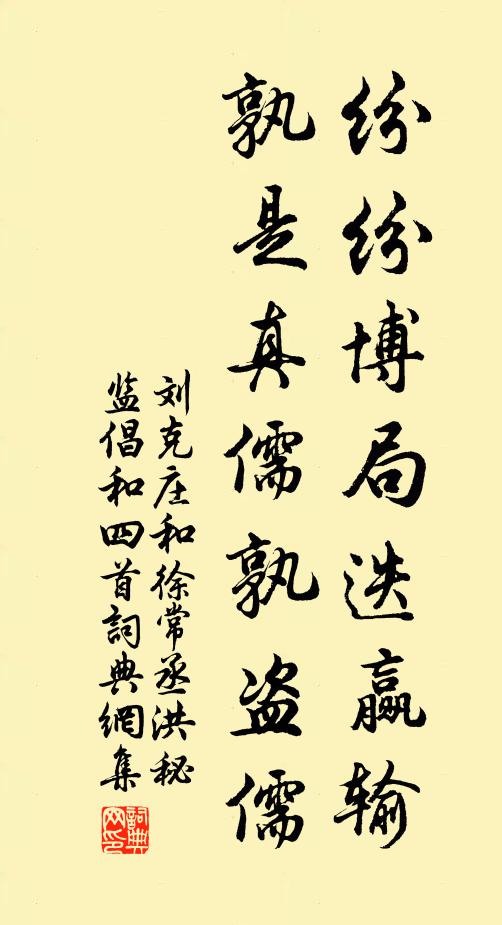 纷纷博局迭赢输
孰是真儒孰盗儒
刘克庄和徐常丞洪秘
监倡和四首詞典網集
詞典网印